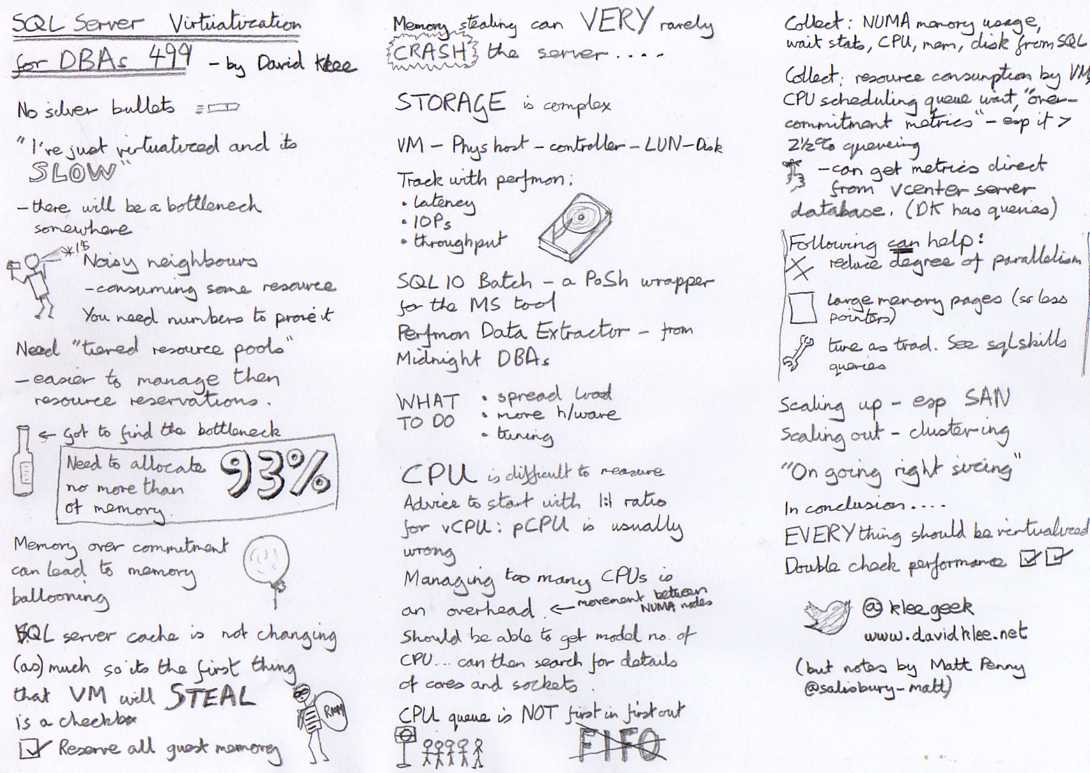 SQL Server Virtualization
for DBAs 499 - by David Klee
No silver bullets
"I've just virtualized and its
SLOW"
- there will be a bottleneck
somewhere
Noisy neighbours
- consuming some resource
You need numbers to prove it
Need "tiered resource pools"
- easier to manage then
resource reservations.
← Got to find the bottleneck
Need to allocate 93%
no more than
of memory.
Memory over commitment
can lead to memory
ballooning
SQL server cache is not changing
(as) much so its the first thing
that VM will STEAL
is a checkbox
Reserve all guest memory
RAM
Memory stealing can VERY rarely
CRASH the server ....
STORAGE is complex
VM - Phys host - controller - LUN - Disk
Track with perfmon:
• latency
• IOPs
• throughput
SQL IO Batch - a PoSh wrapper
for the MS tool
Perfmon Data Extractor - from
Midnight DBAs
WHAT TO DO
• spread load
• more h/ware
• tuning
CPU is difficult to measure
Advice to start with 1:1 ratio
for vCPU: pCPU is usually
wrong
Managing too many CPUs is
an overhead. ← movement between
NUMA nodes
Should be able to get model no. of
CPU... can then search for details
of cores and sockets.
CPU queue is NOT first in first out
FIFO
Collect: NUMA memory usage,
wait stats, CPU, mem, disk from SQL
Collect: resource consumption by VM,
CPU scheduling queue wait, "over-
commitment metrics" - esp if >
2½% queueing
- can get metrics direct
from vcenter server
database. (DK has queries)
Following can help:
reduce degree of parallelism
Large memory pages (so less
pointers)
tune as trad. See sqlskills
queries
Scaling up - esp SAN
Scaling out - clustering
"On going right sizing"
In conclusion....
EVERYthing should be virtualized
Double check performance
@kleegeek
www.davidklee.net
(but notes by Matt Penny
@salisbury-matt)